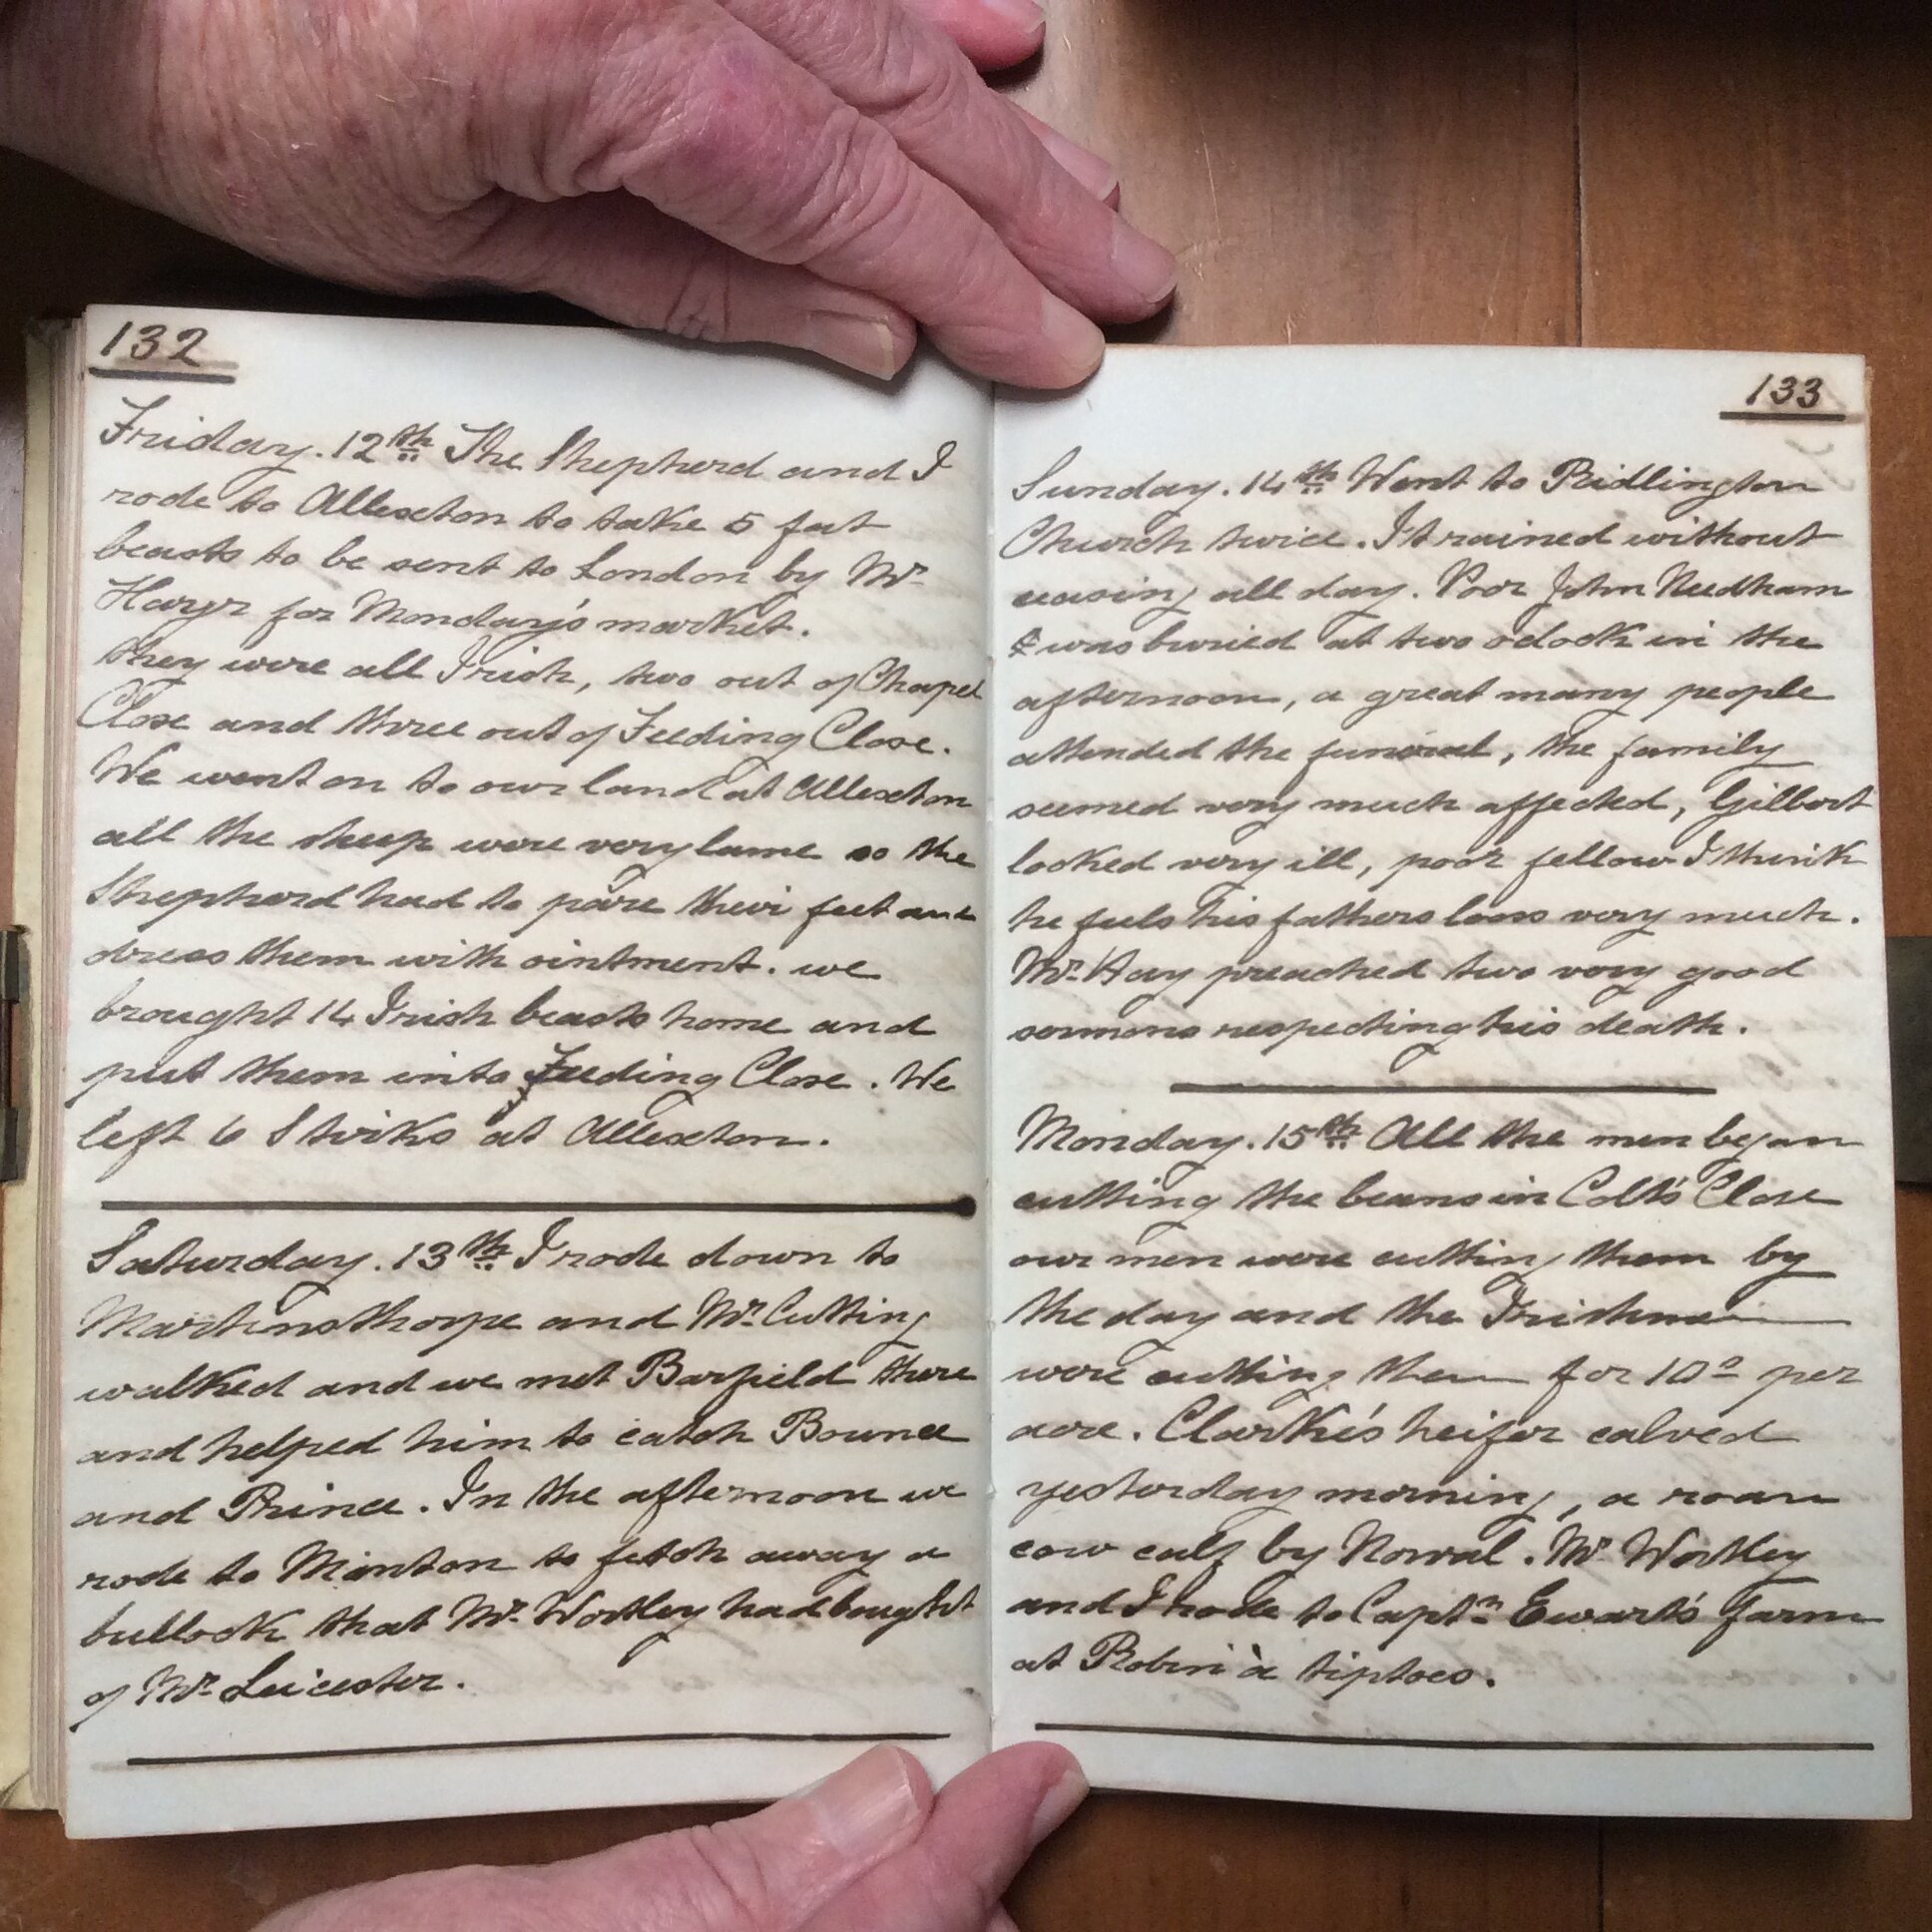 132
Friday. 12th The Shepherd and I
rode to Allexton to take 5 fat
beasts to be sent to London by Mr
for Monday's market.
they were all Irish, two out of Chapel
Close and three out of Feeding Close.
We went on to our land at Allexton
all the sheep were very lame so the
Shepherd had to pare their feet and
dress them with ointment. we
brought 14 Irish beasts home and
put them into Feeding Close. We
left 6 Stirks at Allexton.
Saturday. 13th I rode down to
Martinsthorpe and Mr. Cutting
walked and we met Barfield there
and helped him to catch Bounce
and Prince. In the afternoon we
rode to Manton to fetch away a
bullock that Mr. Wortley had bought
of Mr. Leicester.
133
Sunday. 14th Went to Ridlington
Church twice. It rained without
ceasing all day. Poor John Needham
was buried at two oclock in the
afternoon, a great many people
attended the funeral, the family
seemed very much affected, Gilbert
looked very ill, poor fellow I think
he feels his fathers loss very much.
Mr. Hay preached two very good
sermons respecting his death.
Monday. 15th All the men began
cutting the beans in Colt's Close
our men were cutting them by
the day and the Irishmen
were cutting them for 10s per
acre. Clarke's heifer calved
yesterday morning, a roan
cow calf by Norval. Mr. Wortley
and I rode to Captn Ewart's farm
at Robin à tiptoes.